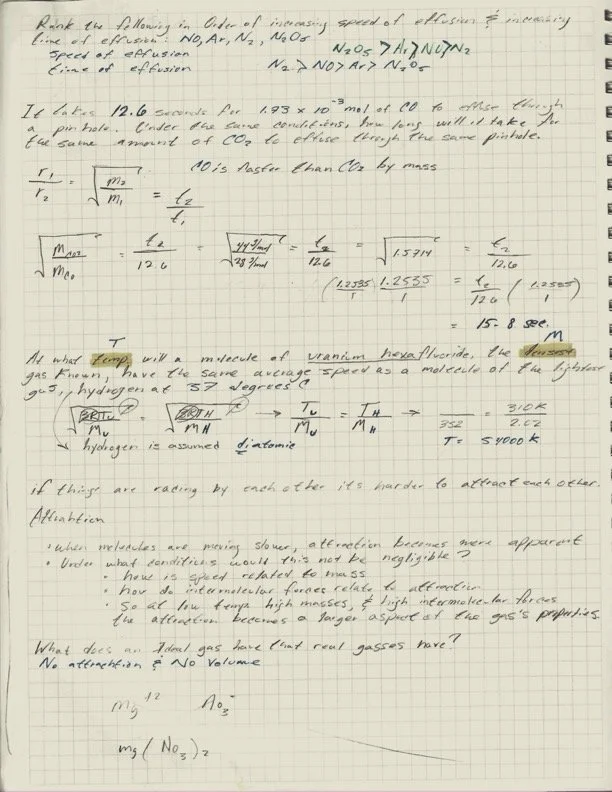 Rank the following in order of increasing speed of effusion & increasing
time of effusion: NO, Ar, N₂, N₂O₅
speed of effusion N₂O₅ > Ar > NO > N₂
time of effusion N₂ > NO > Ar > N₂O₅
It takes 12.6 seconds for 1.73 × 10⁻³ mol of CO to effuse through
a pinhole. Under the same conditions, how long will it take for
the same amount of CO₂ to effuse through the same pinhole.
r₁/r₂ = √(m₂/m₁) = t₂/t₁ CO is faster than CO₂ by mass
√(M CO₂/M CO) = t₂/12.6 = √(44 g/mol/28 g/mol) = t₂/12.6 = √1.5714 = t₂/12.6
(1.2535/1) 1.2535/1 = t₂/12.6 (1.2535/1)
= 15.8 sec.
T M
At what temp will a molecule of uranium hexafluoride, the densest
gas known, have the same average speed as a molecule of the lightest
gas, hydrogen at 37 degrees C
√(3RTᵤ/Mᵤ) = √(3RT H/M H) → Tᵤ/Mᵤ = T H/M H → /352 = 310K/2.02
hydrogen is assumed diatomic T = 54000 K
if things are racing by each other its harder to attract each other.
Attrahtion
· when molecules are moving slower, attraction becomes more apparent
· Under what conditions would this not be negligible?
· how is speed related to mass
· how do intermolecular forces relate to attraction
· So at low temps high masses, & high intermolecular forces
the attraction becomes a larger aspect of the gas's properties
What does an Ideal gas have that real gasses have?
No attrachtion & No volume
mg⁺² No₃⁻
mg(No₃)₂